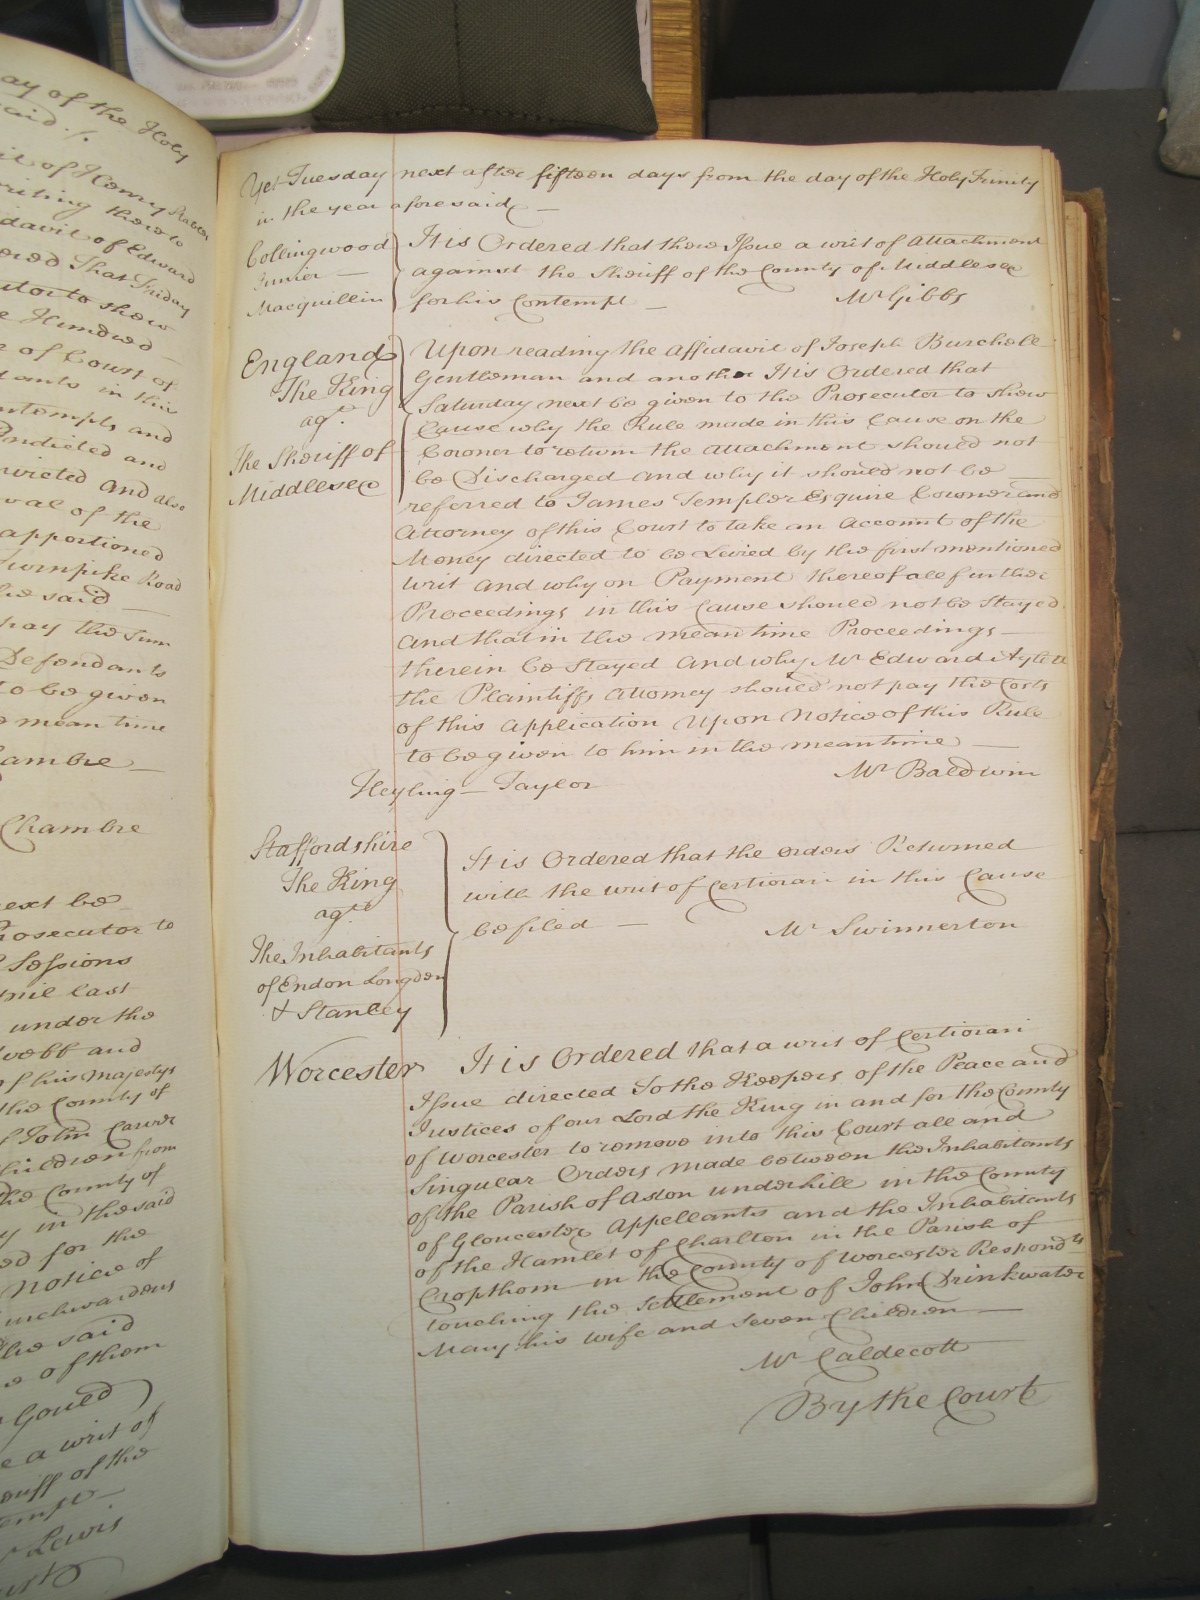 ay of the Holy
said ./.
it of Henry
riting thereto
davit of Edward
ered That Friday
utor to shew
e Hundred
r of Court of
dants in this
ntempts and
Indicted and
nvicted and also
oval of the
apportioned
Turnpike Road
he said
pay the Sum
Defendants
to be given
e mean time
ambre
Chambre
next be
Prosecutor to
Sessions
pril last
under the
Webb and
of his Majestys
the County of
of John
Children from
the County of
y in the said
ed for the
Notice of
Churchwardens
the said
e of them
Gould
e a writ of
eriff of the
empt
r Lewis
urt
Yet Tuesday next after fifteen days from the day of the Holy Trinity
in the year aforesaid
Collingwood
Junior
Macquillin
It is Ordered that there Issue a writ of Attachment
against the Sheriff of the County of Middlesex
for his Contempt
Mr Gibbs
England
The King
agt.
The Sheriff of
Middlesex
Upon reading the Affidavit of Joseph Burchell
Gentleman and another It is Ordered that
Saturday next be given to the Prosecutor to shew
Cause why the Rule made in this Cause on the
Coroner to return the attachment should not
be Discharged and why it should not be
referred to James Templer Esquire Coroner and
Attorney of this Court to take an Account of the
Money directed to be Levied by the first mentioned
writ and why on Payment thereof all further
Proceedings in this Cause should not be Stayed
and that in the mean time Proceedings
therein be Stayed and why Mr Edward Aylett
the Plaintiffs Attorney should not pay the Costs
of this Application Upon Notice of this Rule
to be given to him in the meantime
Mr Baldwin
Heyling - Taylor
Staffordshire
The King
agt.
The Inhabitants
of Endon Longdon
& Stanley
It is Ordered that the orders Returned
with the writ of Certiorari in this Cause
be filed
Mr Swinnerton
Worcester It is Ordered that a writ of Certiorari
Issue directed To the Keepers of the Peace and
Justices of our Lord the King in and for the County
of Worcester to remove into this Court all and
Singular Orders made between the Inhabitants
of the Parish of Aston underhill in the County
of Gloucester Appellants and the Inhabitants
of the Hamlet of Charlton in the Parish of
Cropthorn in the County of Worcester Respondts
touching the Settlement of John Drinkwater
Mary his wife and Seven Children
Mr Caldecott
By the Court